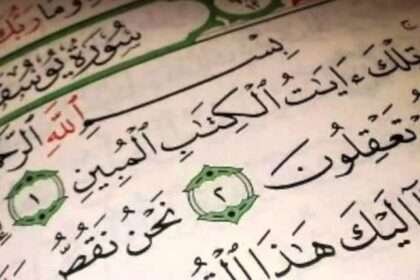 وَمَا رَبُّكَ
سُورَةُ يُوسُفَ
بِسْمِ ٱللَّهِ
تِلْكَ ءَايَٰتُ ٱلْكِتَٰبِ ٱلْمُبِينِ ١
تَعْقِلُونَ ٢ نَحْنُ نَقُصُّ
إِلَيْكَ هَٰذَا